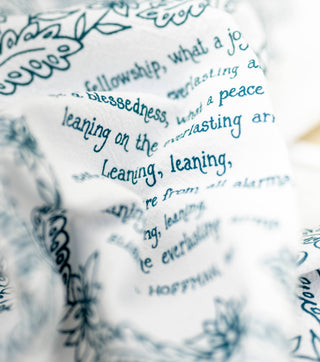 fellowship, what a jo
everlasting a
a blessedness, what a peace
leaning on the everlasting ar
Leaning, leaning,
re from all alarms
ng, leaning,
he everlasting
HOFFMAN